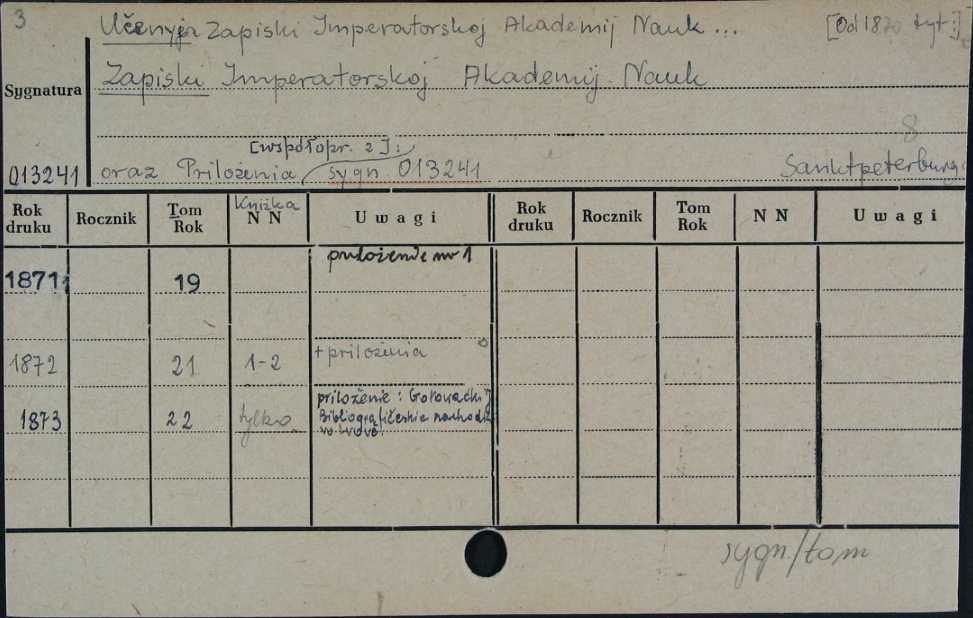 3
Učenyja Zapiski Imperatorskoj Akademij Nauk ... [Od 1870 tyt:]
Zapiski Imperatorskoj Akademij Nauk
Sygnatura
8
[współopr. z]:
013241 oraz Priloženia sygn 013241 Sanktpeterburg
Rok druku Rocznik Tom Rok Knižka NN Uwagi Rok druku Rocznik Tom Rok NN Uwagi
priloženie nr 1
1871 19
1872 21 1-2 + priloženia
priloženie: Gołovackij
1873 22 tylko Bibliografičeskie nachodki
vo Lvove.
sygn/tom